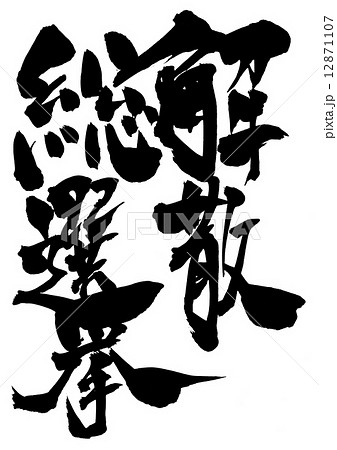 解散
総選挙
PIXTA
pixta.jp - 12871107